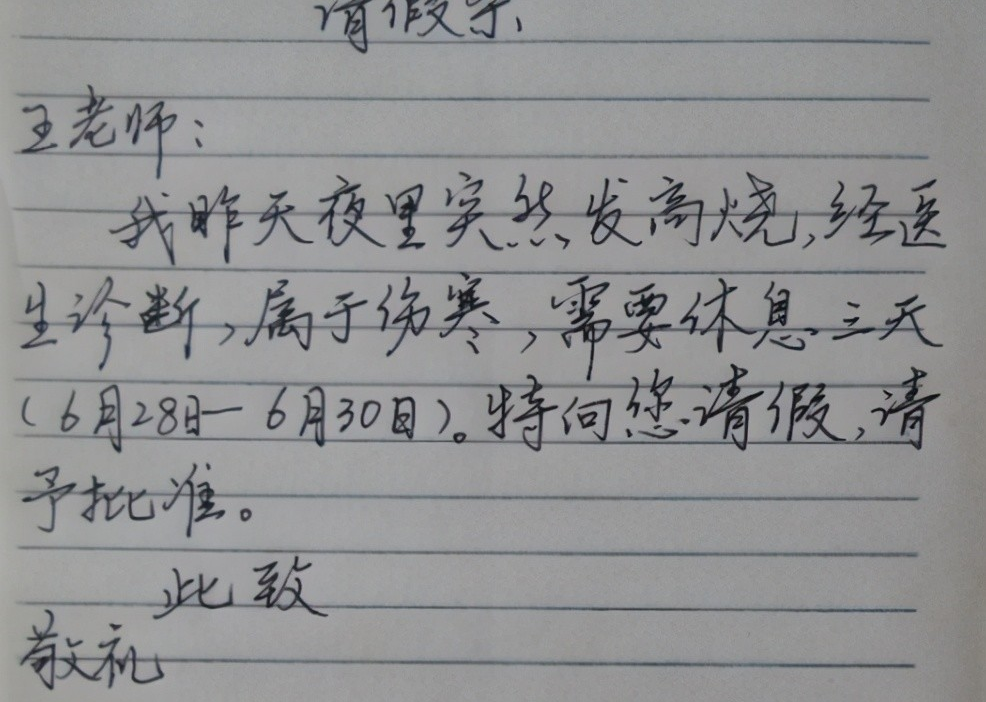 请假条
王老师：
我昨天夜里突然发高烧,经医
生诊断,属于伤寒,需要休息三天
(6月28日—6月30日)。特向您请假,请
予批准。
此致
敬礼